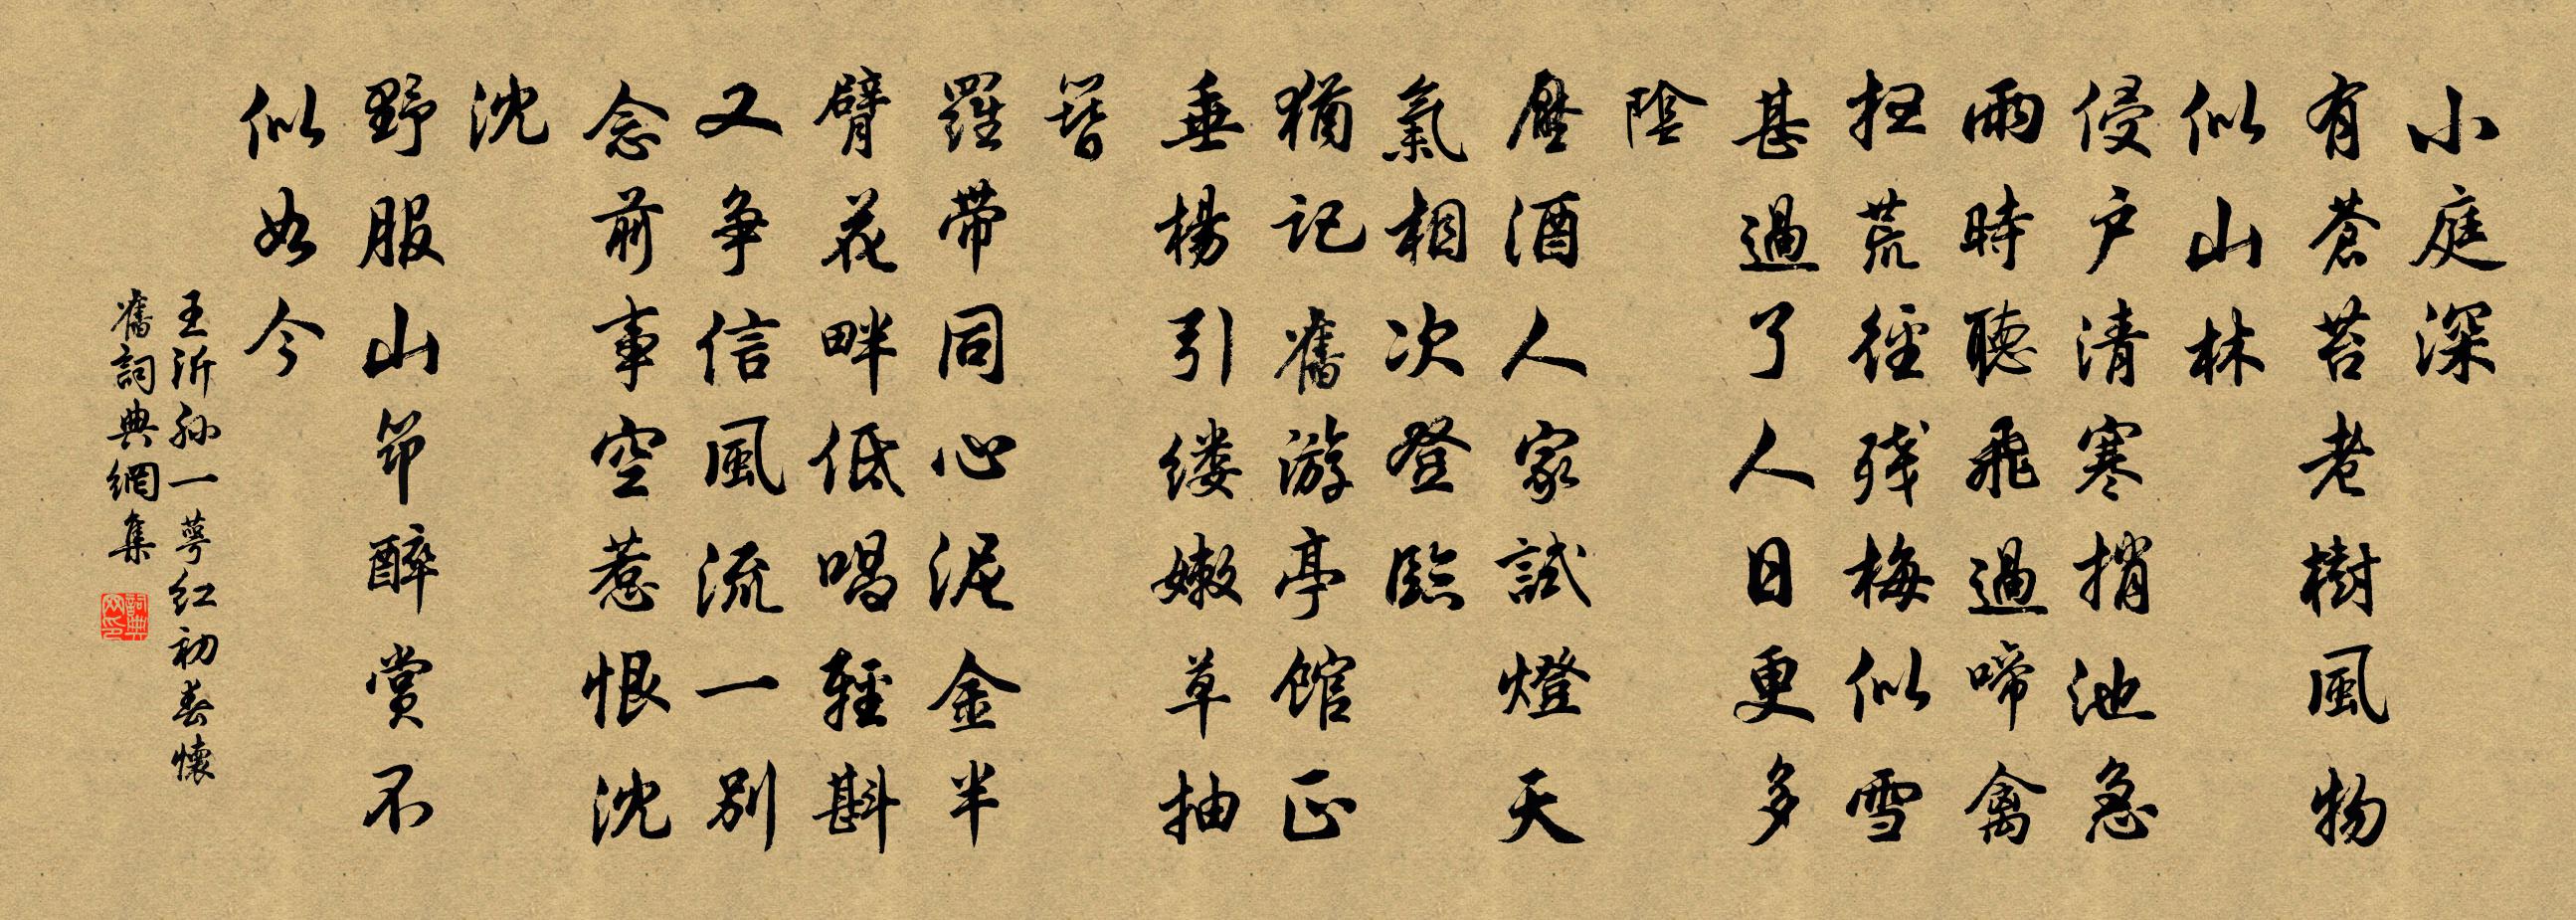 小庭深
有蒼苔老樹風物
似山林
侵户清寒捎池急
雨時聽飛過啼禽
掃荒徑残梅似雪
甚過了人日更多
陰
壓酒人家試燈天
氣相次登臨
猶記舊游亭館正
垂楊引缕嫩草抽
簪
羅带同心泥金半
臂花畔低唱輕斟
又争信風流一别
念前事空惹恨沈
沈
野服山筇醉賞不
似如今
王沂孙一萼红初春懷
舊詞典網集
詞典網印